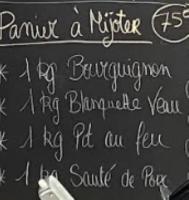 Panier à Mijoter 75
* 1 kg Bourguignon
* 1 kg Blanquette Veau
* 1 kg Pot au feu
* 1 kg Sauté de Porc